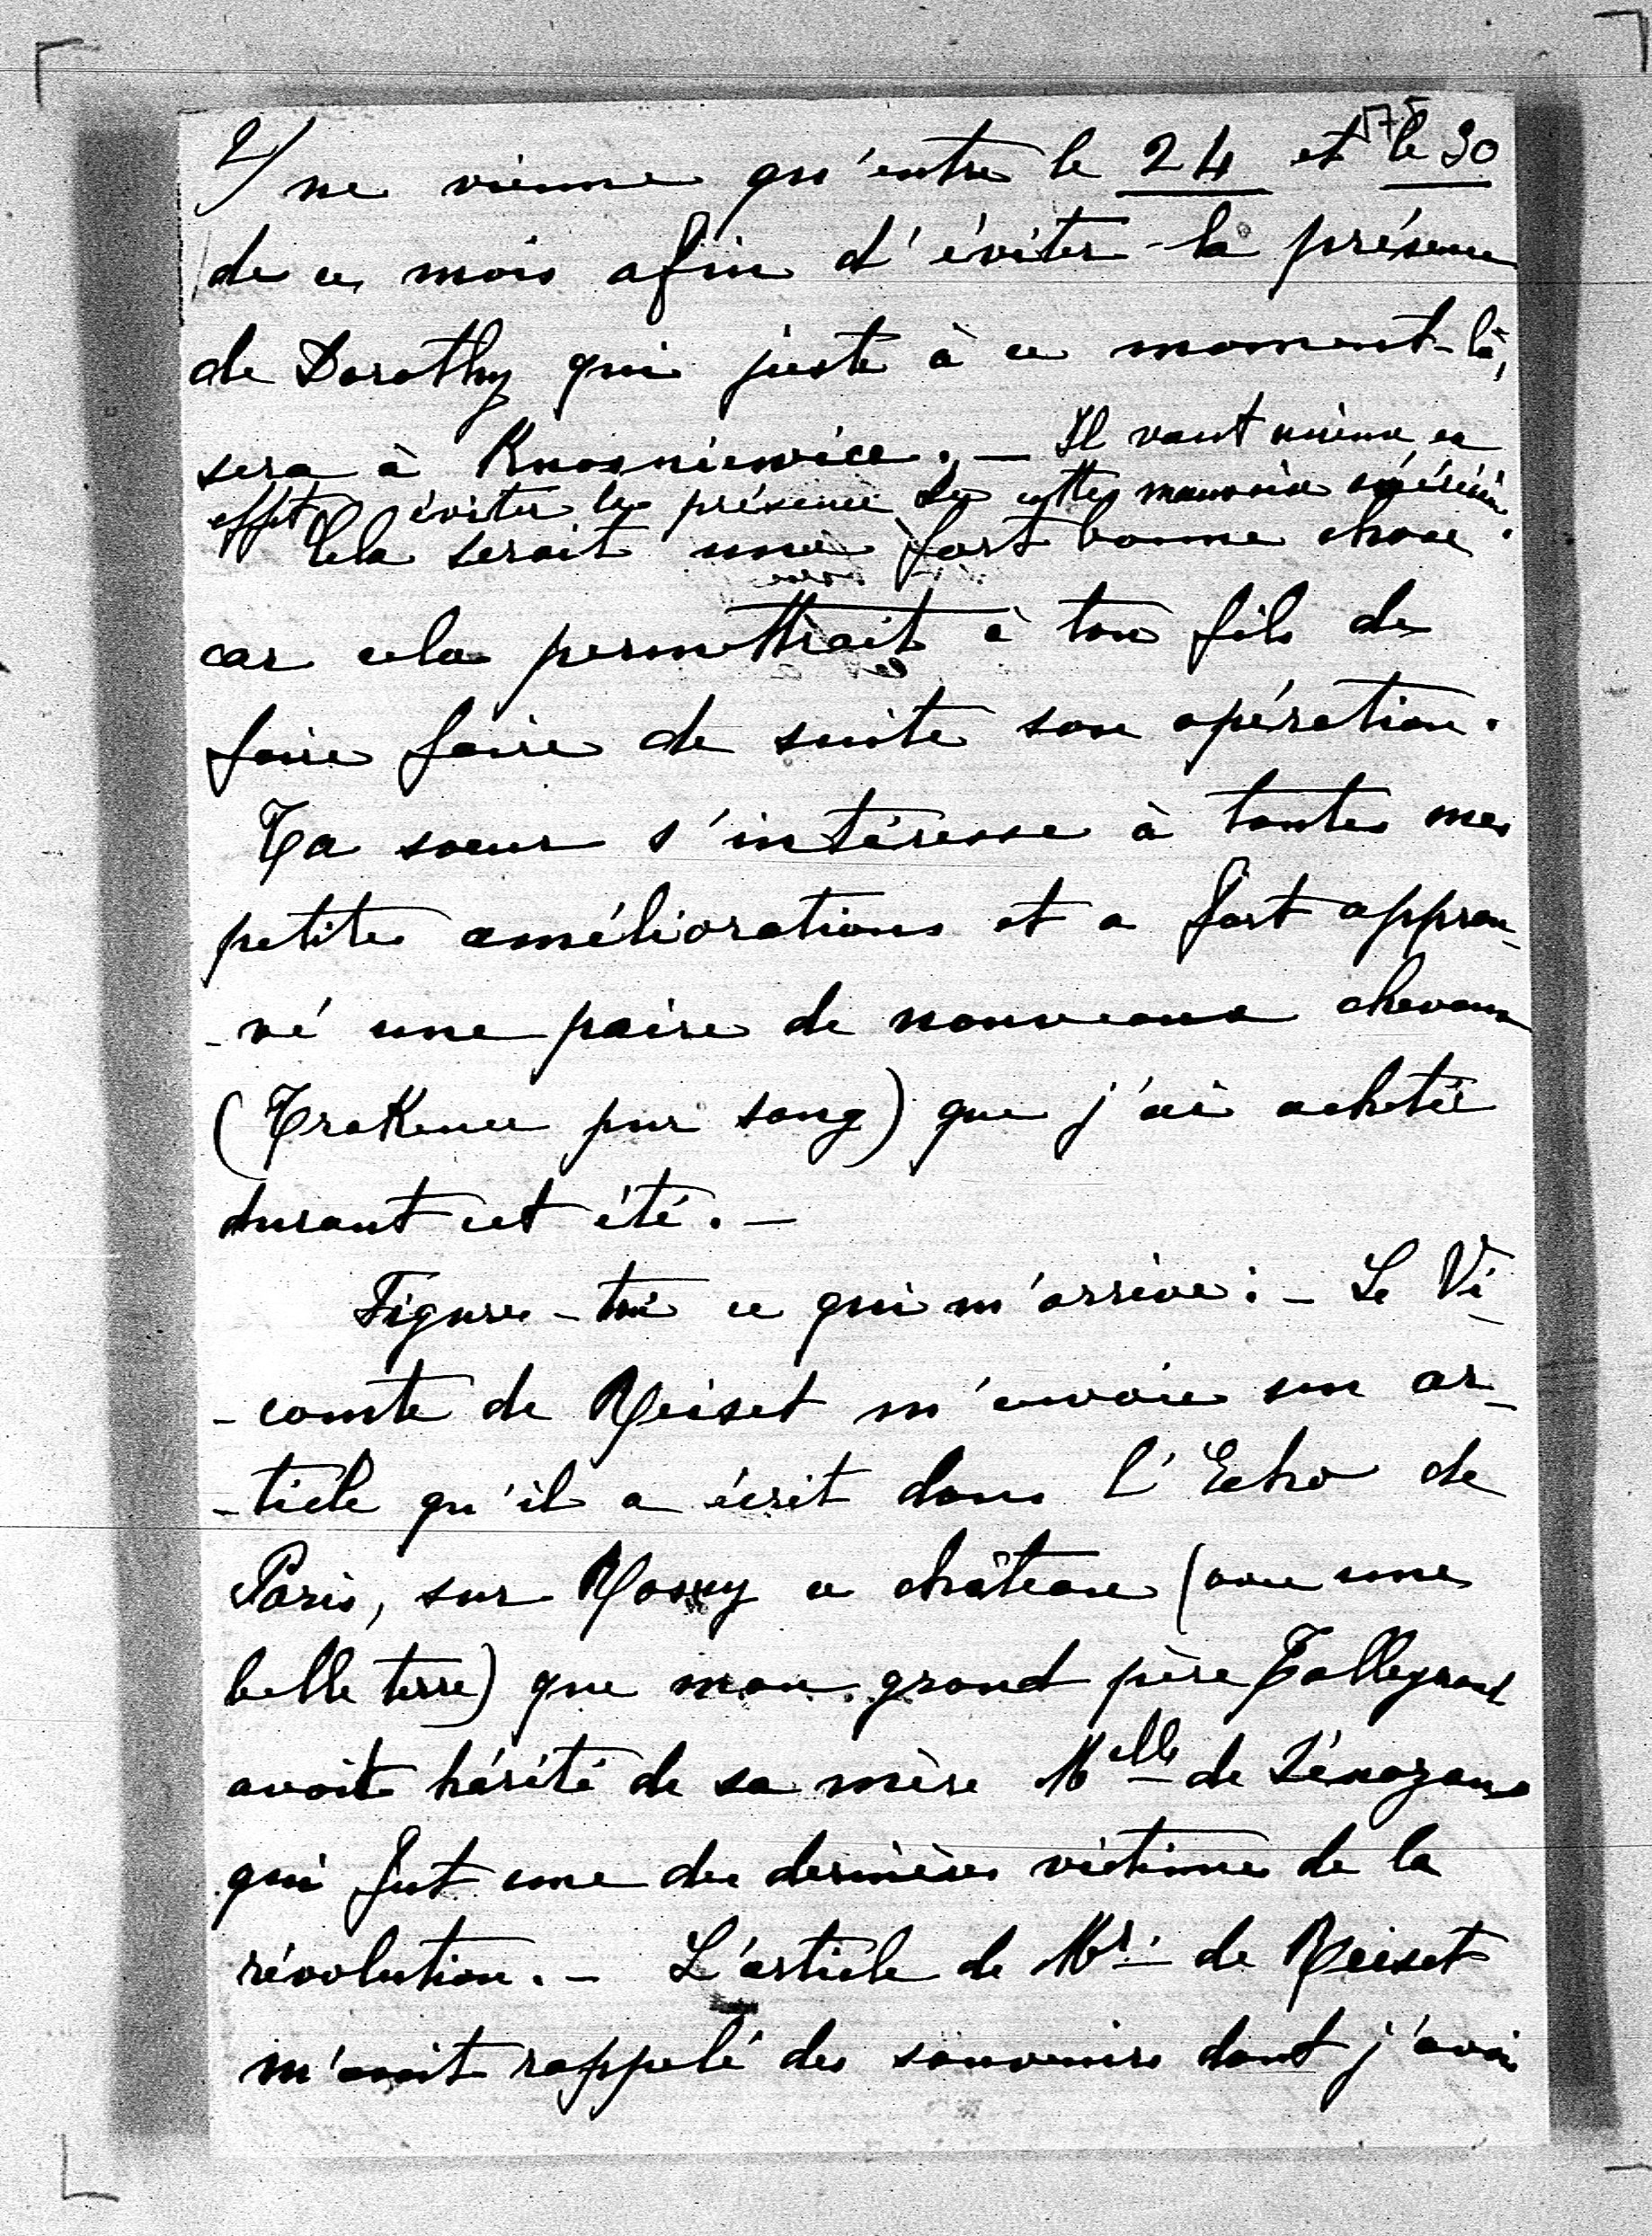 175
2/ ne vienne qu'entre le 24 et le 30
de ce mois afin d'éviter la présence
de Dorothy qui juste à ce moment-là,
sera à Kwasniewice. — Il vaut mieux en
effet éviter la présence de cette mauvaise
Cela serait une fort bonne chose.
car cela permettrait à ton fils de
faire faire de suite son opération.
Ta soeur s'intéresse à toutes mes
petites améliorations et a fort approu-
-vé une paire de nouveaux chevaux
(Trakenee pur sang) que j'ai achetée
durant cet été. —
Figure-toi ce qui m'arrive : — Le Vi-
-comte de Reiset m'envoie un ar-
-ticle qu'il a écrit dans l'Echo de
Paris, sur Rosny ce château (avec une
belle terre) que mon grand père Talleyrand
avait hérité de sa mère Melle de Sénozans
qui fut une des dernières victimes de la
révolution. — L'article de Mr de Reiset
m'avait rappelé des souvenirs dont j'avais